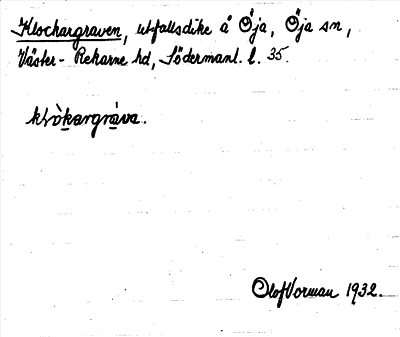 Klockargraven, utfallsdike å Öja, Öja sn,
Väster-Rekarne hd, Södermanl. l. 35.
klò̀kargráva.
Olof Vorman 1932.